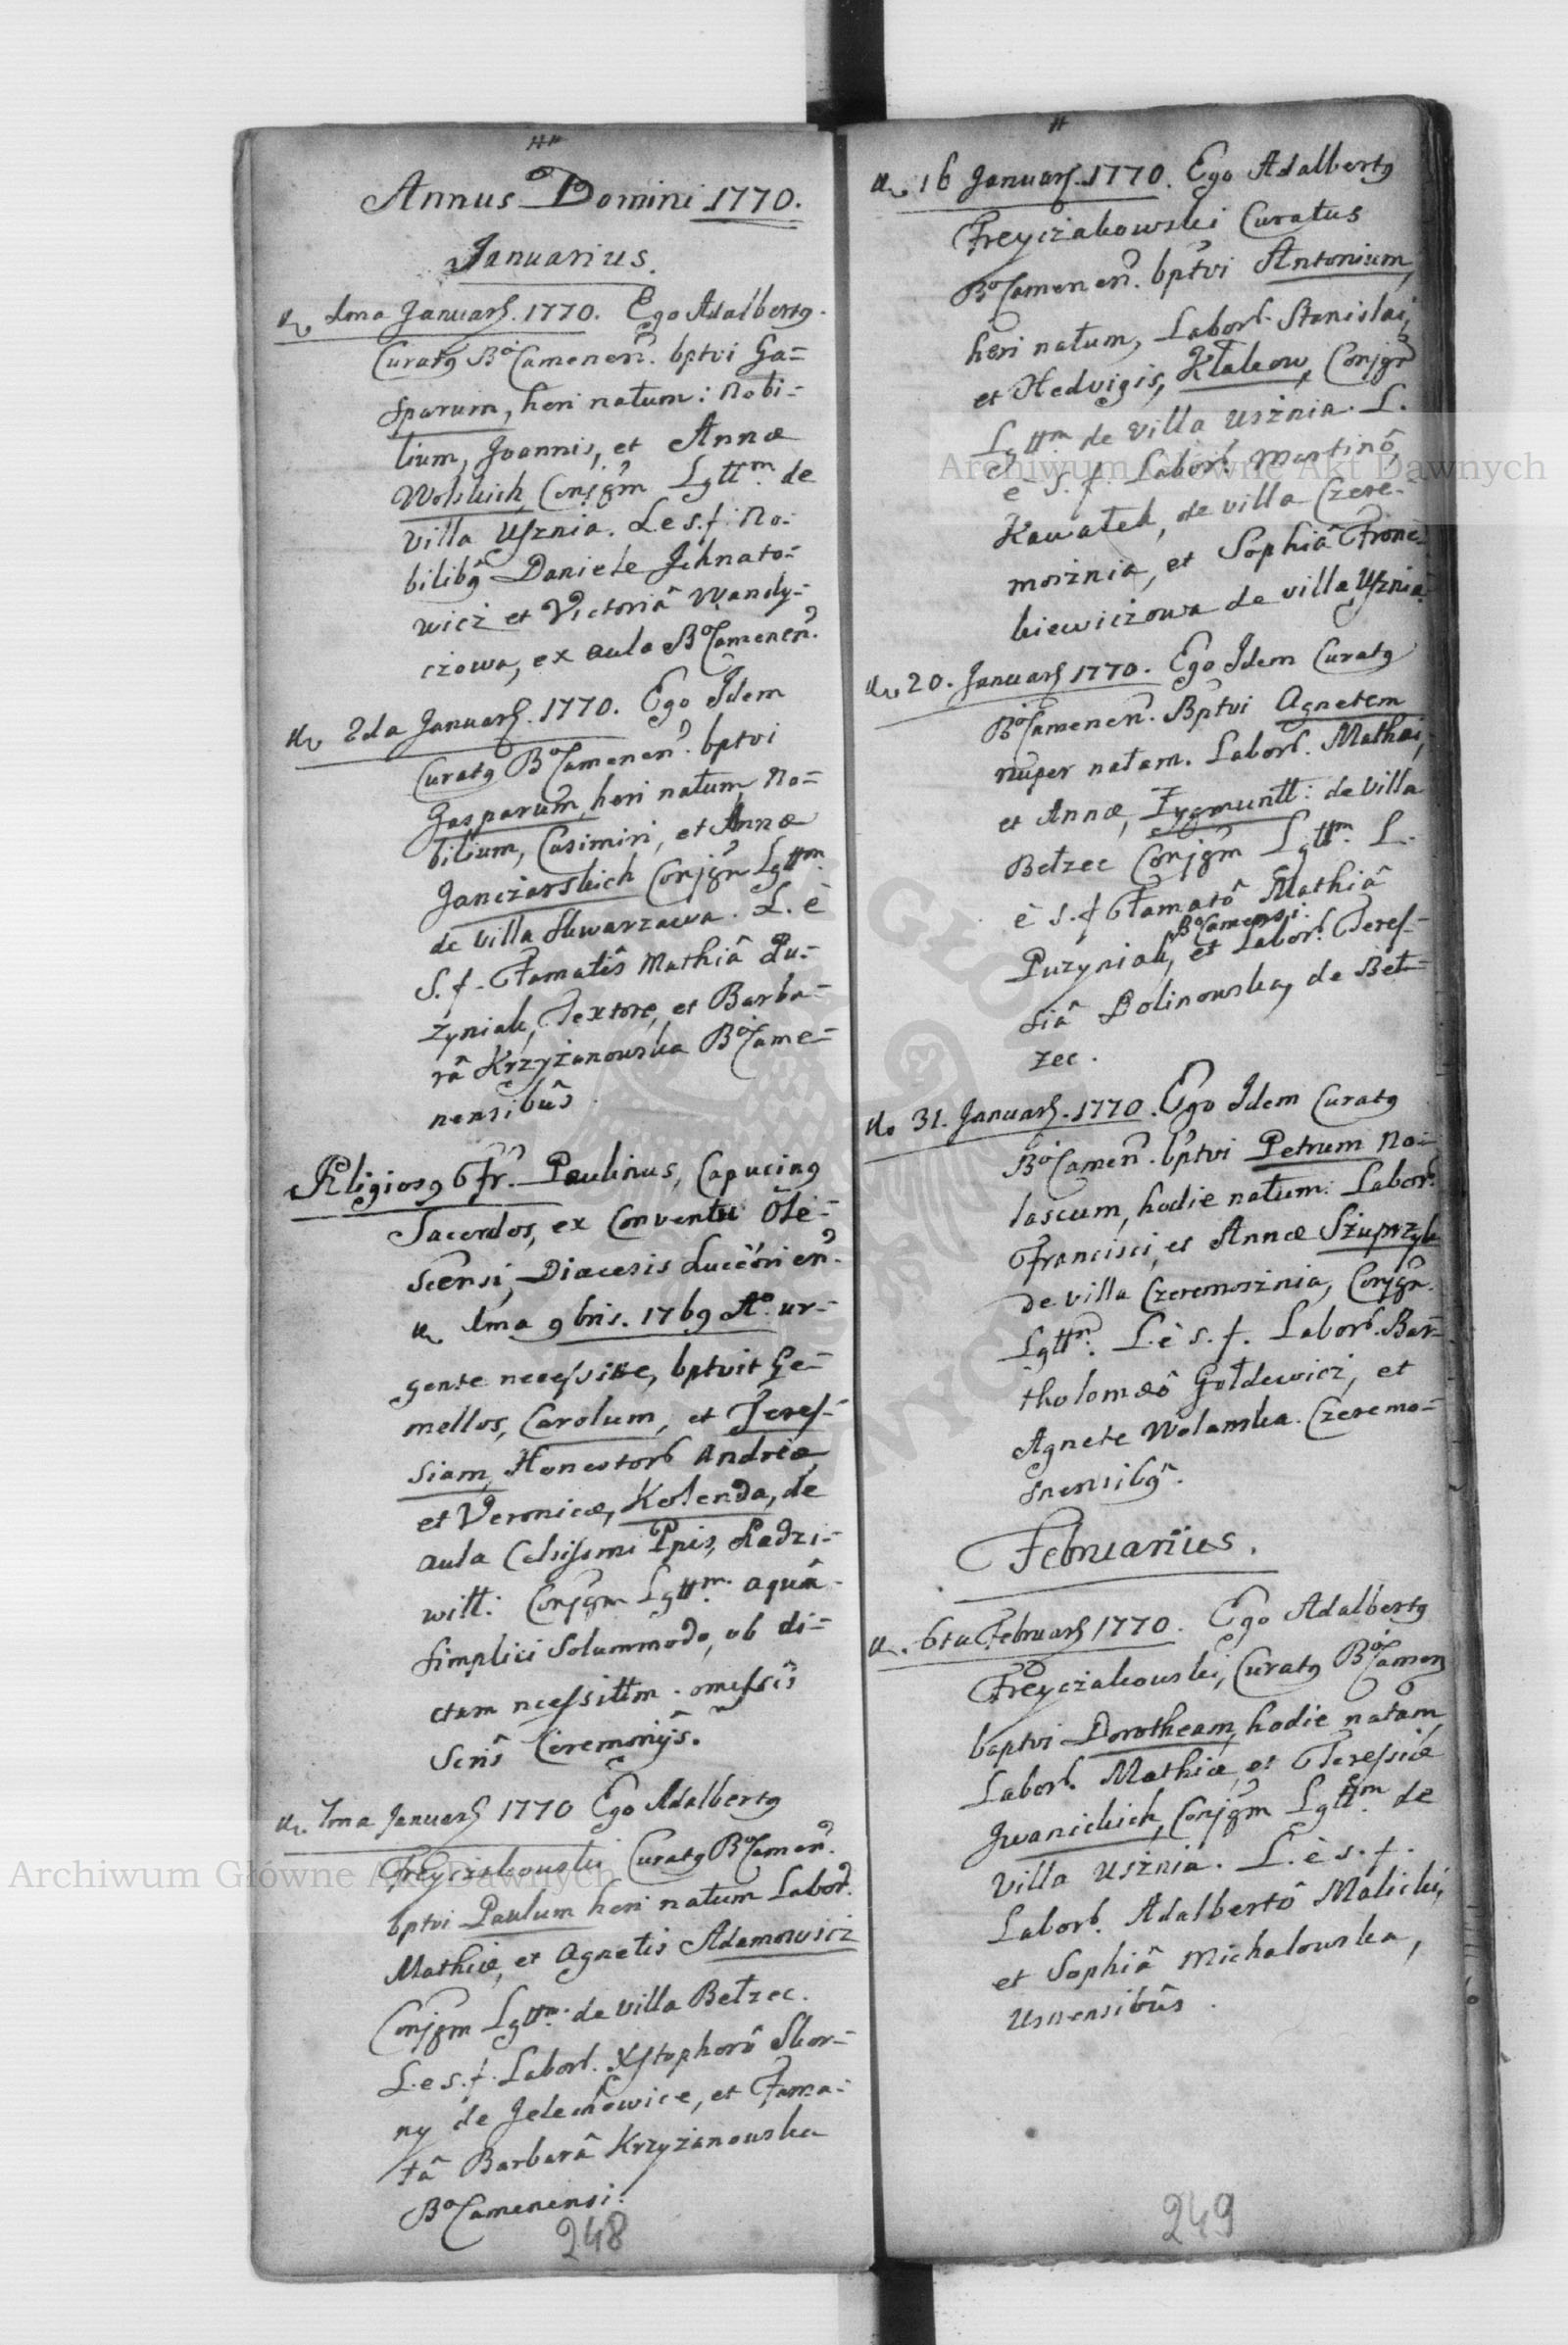 Annus Domini 1770.
Januarius.
1ma Januarÿ. 1770. Ego Adalberty
Curaty BoCamenen. bptvi Ga=
sparum, heri natum: Nobi=
lium, Joannis, et Annæ
Wolskich, Conjgm Lgttm. de
villa Usznia. L. e s. f. No=
bilibg Daniele Jchnato=
wicz et Victoriâ Wandy=
czowa, ex aula BoCamenen.
2da Januarÿ. 1770. Ego Jdem
Curatg BoCamenen. bptvi
Gasparum, heri natum, No=
bilium, Casimiri, et Annæ
Janczarskich Conjgm Lgttm.
de villa Skwarzawa. L. è
S. f. Famatis Mathiâ Pu=
zyniak, Textore, et Barba=
râ Krzyżanowska BoCame=
nensibûs.
Rligiosg Fr. Paulinus, Capucing
Sacerdos, ex Conventu Ole=
scensi, Diæcesis Luceorien.
1ma 9bris. 1769 Ao. ur=
gente necessitte, bptvit Ge=
mellos, Carolum, et Teres=
siam, Honestorb Andreæ,
et Veronicæ, Kolenda, de
aula Celsissimi Ppis, Radzi=
will: Conjgm Lgttm. aquâ
simplici Solummodo, ob di=
ctam ncessittm. omissis
Scris Ceremonijs.
7ma Januarÿ 1770 Ego Adalbertg
Freyczakowski Curatg BoCamen.
bptvi Paulum heri natum Labor.
Mathiæ, et Agnetis Adamowicz
Conjgm Lgttm. de villa Bełzec.
L. e s. f. Labor. Xstophorô Skor=
ny de Jelechowice, et Fama=
tâ Barbarâ Krzyżanowska
BoCamenensi.
248
16 Januarÿ. 1770. Ego Adalbertg
Freyczakowski Curatus
BoCamenen. bptvi Antonium,
heri natum, Labor. Stanislai,
et Hedvigis, Ktakow, Conjgm
Lgttm. de villa Usznia. L.
è S. f. Labor. Martinô
Kawałek, de villa Czere=
moznia, et Sophiâ Fronc=
kiewiczowa de villa Usznia.
20. Januarÿ 1770. Ego Jdem Curatg
BoCamenen. Bptvi Agnetem
nuper natam. Labor. Mathæi,
et Annæ, Zygmuntt: de villa
Bełzec Conjgm Lgttm. L.
è s. f Famatô Mathiâ
BoCamensi.
Puzyniak, et Labor. Teres=
siâ Dolinowska, de Beł=
zec.
31. Januarÿ. 1770. Ego Jdem Curatg
BoCamen. bptvi Petrum No=
lascum, hodie natum. Labor.
Francisci, et Annæ Szuprzyk
de villa Czeremosznia, Conjgm.
Lgttm. L. è s. f. Labor. Bar=
tholomæô Gołdewicz, et
Agnete Wolanska. Czeremo=
snensibg.
Februarius.
6ta Februarÿ 1770. Ego Adalbertg
Freyczakowski, Curatg BoCamen
baptvi Dorotheam, hodie natam
Labor. Mathiæ, et Teressiæ
Jwanickich, Conjgm Lgttm. de
villa Usznia. L. è s. f.
Labor. Adalbertô Malicki,
et Sophiâ Michalowska,
Usnensibûs.
249
Archiwum Główne Akt Dawnych
Archiwum Główne Akt Dawnych